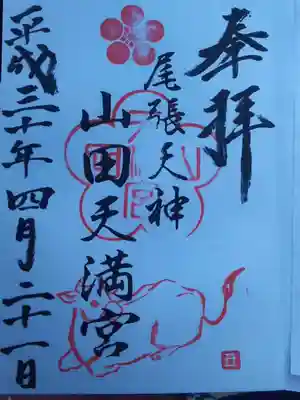 奉拝
尾張天神
山田天満宮
平成三十年四月二十一日